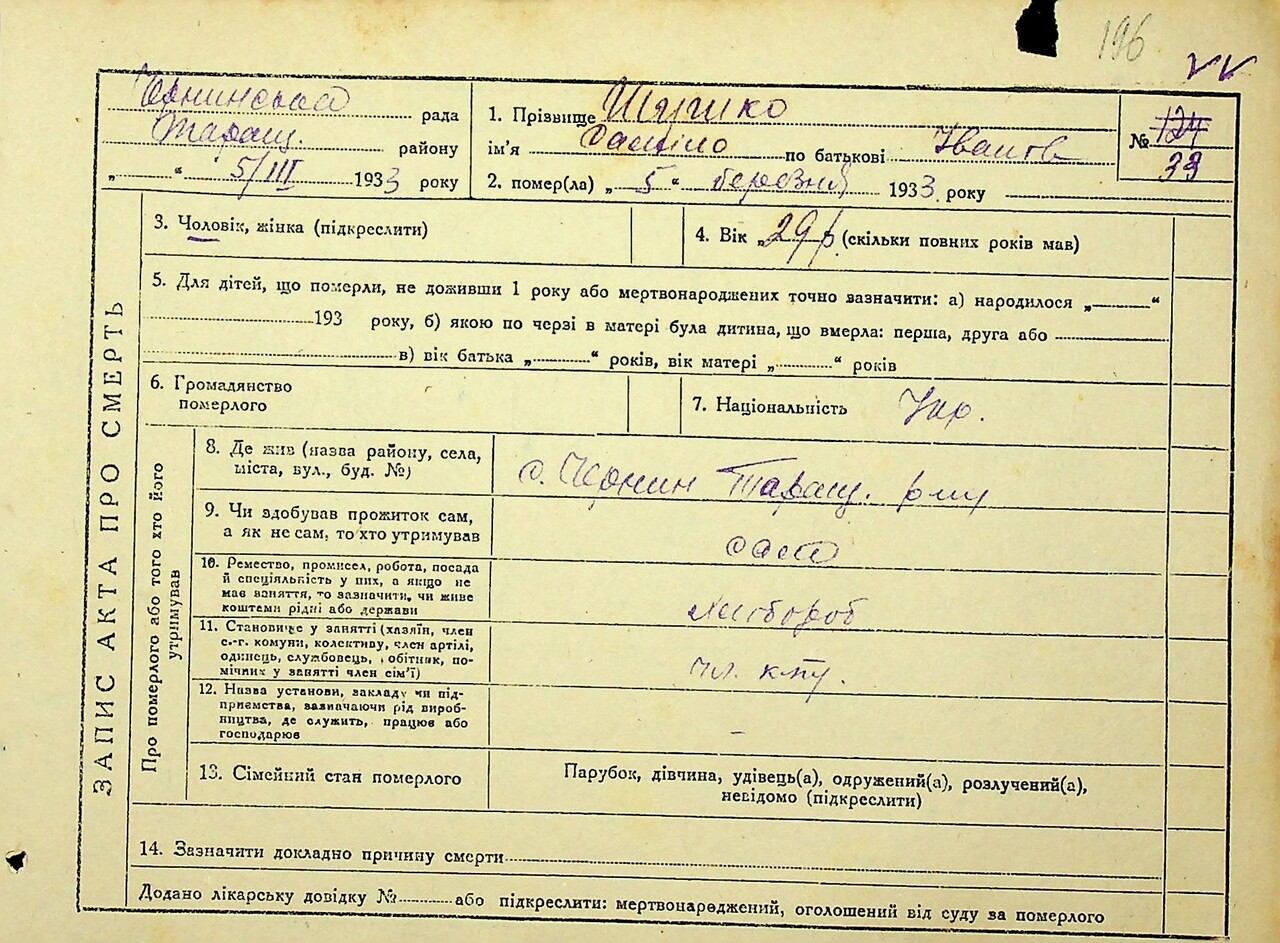 196
Чернинська рада
Таращ. району
„ “ 5/III 1933 року
1. Прізвище
ім'я Данило по батькові Іванов
2. помер(ла) „ 5 “ березня 1933 року
№ 124
33
3. Чоловік, жінка (підкреслити)
4. Вік „ 29 р. (скільки повних років мав)
5. Для дітей, що померли, не доживши 1 року або мертвонароджених точно зазначити: а) народилося „ “
193 року, б) якою по черзі в матері була дитина, що вмерла: перша, друга або
в) вік батька „ “ років, вік матері „ “ років
6. Громадянство
померлого
7. Національність Укр.
ЗАПИС АКТА ПРО СМЕРТЬ
Про померлого або того хто його
утримував
8. Де жив (назва району, села,
міста, вул., буд. №)
с. Чернин Таращ. р-ну
9. Чи здобував прожиток сам,
а як не сам, то хто утримував
сам
10. Ремество, промисел, робота, посада
й спеціяльність у них, а якщо не
має заняття, то зазначити, чи живе
коштами рідні або держави
хлібороб
11. Становище у занятті (хазяїн, член
с.-г. комуни, колективу, член артілі,
одинець, службовець, обітник, по-
мічник у занятті член сім'ї)
чл. кгу.
12. Назва установи, закладу чи під-
приємства, зазначаючи рід вироб-
ництва, де служить, працює або
господарює
-
13. Сімейний стан померлого
Парубок, дівчина, удівець(а), одружений(а), розлучений(а),
невідомо (підкреслити)
14. Зазначити докладно причину смерти
Додано лікарську довідку № або підкреслити: мертвонароджений, оголошений від суду за померлого